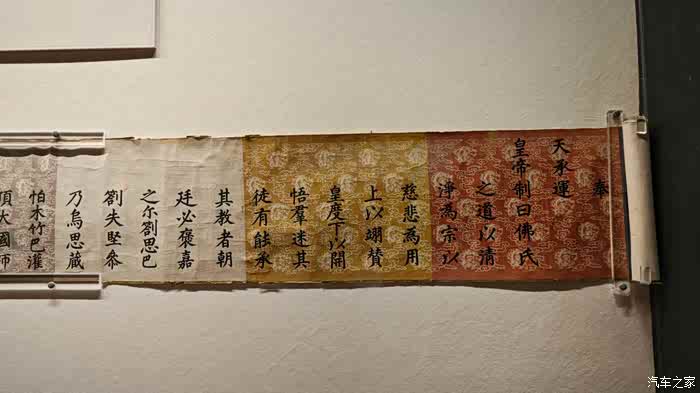 奉
天承運
皇帝制曰佛氏
之道以清
淨為宗以
慈悲為用
上以翊贊
皇度下以開
悟羣迷其
徒有能承
其教者朝
廷必褒嘉
之尔劄思巴
劄失堅叅
乃烏思藏
怕木竹巴灌
頂大國師
汽车之家